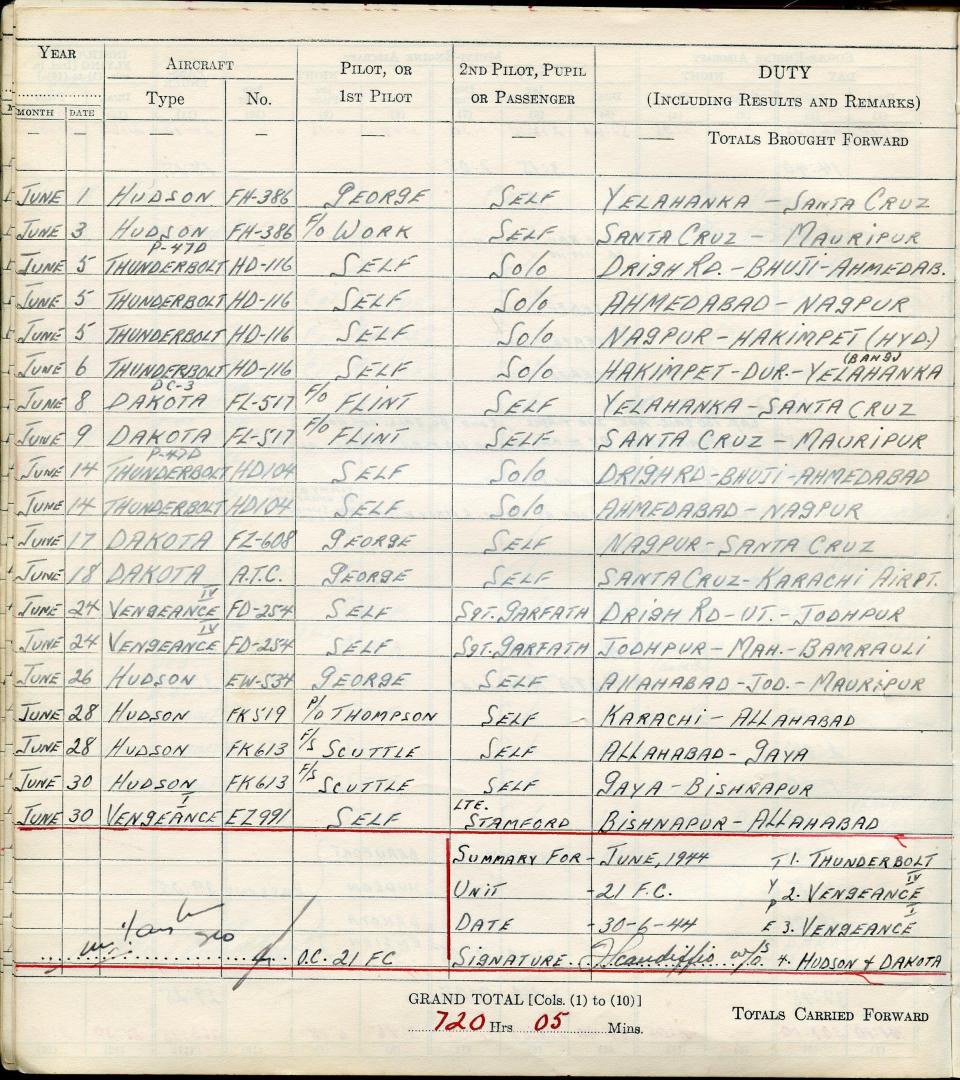 YEAR AIRCRAFT PILOT, OR 2ND PILOT, PUPIL DUTY
MONTH DATE Type No. 1ST PILOT OR PASSENGER (INCLUDING RESULTS AND REMARKS)
— — — — TOTALS BROUGHT FORWARD
JUNE 1 HUDSON FH-386 GEORGE SELF YELAHANKA - SANTA CRUZ
JUNE 3 HUDSON FH-386 F/O WORK SELF SANTA CRUZ - MAURIPUR
P-47D
JUNE 5 THUNDERBOLT HD-116 SELF Solo DRIGH RD. - BHUJI-AHMEDAB.
JUNE 5 THUNDERBOLT HD-116 SELF Solo AHMEDABAD - NAGPUR
JUNE 5 THUNDERBOLT HD-116 SELF Solo NAGPUR - HAKIMPET (HYD.)
JUNE 6 THUNDERBOLT HD-116 SELF Solo HAKIMPET-DUR.-YELAHANKA (BANG)
DC-3
JUNE 8 DAKOTA FL-517 F/O FLINT SELF YELAHANKA-SANTA CRUZ
JUNE 9 DAKOTA FL-517 F/O FLINT SELF SANTA CRUZ - MAURIPUR
P-47D
JUNE 14 THUNDERBOLT HD104 SELF Solo DRIGH RD-BHUJI-AHMEDABAD
JUNE 14 THUNDERBOLT HD104 SELF Solo AHMEDABAD-NAGPUR
JUNE 17 DAKOTA FZ-608 GEORGE SELF NAGPUR-SANTA CRUZ
JUNE 18 DAKOTA A.T.C. GEORGE SELF SANTA CRUZ-KARACHI AIRPT.
JUNE 24 VENGEANCE IV FD-254 SELF SGT. GARFATH DRIGH RD-UT.-JODHPUR
JUNE 24 VENGEANCE IV FD-254 SELF SGT. GARFATH JODHPUR-MAH.-BAMRAULI
JUNE 26 HUDSON EW-534 GEORGE SELF AllAHABAD-JOD.-MAURIPUR
JUNE 28 HUDSON FK519 P/O THOMPSON SELF - KARACHI-ALLAHABAD
JUNE 28 HUDSON FK613 F/S SCUTTLE SELF ALLAHABAD-GAYA
JUNE 30 HUDSON FK613 F/S SCUTTLE SELF GAYA-BISHNAPUR
JUNE 30 VENGEANCE I EZ991 SELF LTE. STAMFORD BISHNAPUR-ALLAHABAD
SUMMARY FOR - JUNE, 1944 T 1. THUNDERBOLT
UNIT - 21 F.C. Y 2. VENGEANCE IV
DATE - 30-6-44 P E 3. VENGEANCE I
O.C. 21 FC SIGNATURE. W/O. 4. HUDSON & DAKOTA
GRAND TOTAL [Cols. (1) to (10)]
720 Hrs 05 Mins. TOTALS CARRIED FORWARD